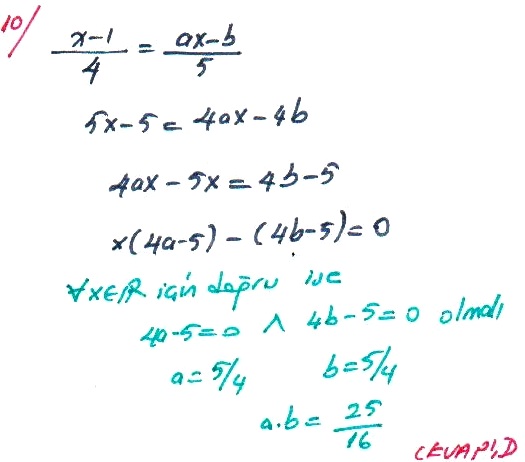 10/
x-1/4 = ax-b/5
5x-5 = 4ax-4b
4ax-5x = 4b-5
x(4a-5) - (4b-5) = 0
∀x∈ℝ için doğru ise
4a-5=0 ∧ 4b-5=0 olmalı
a=5/4 b=5/4
a.b = 25/16
CEVAP:D